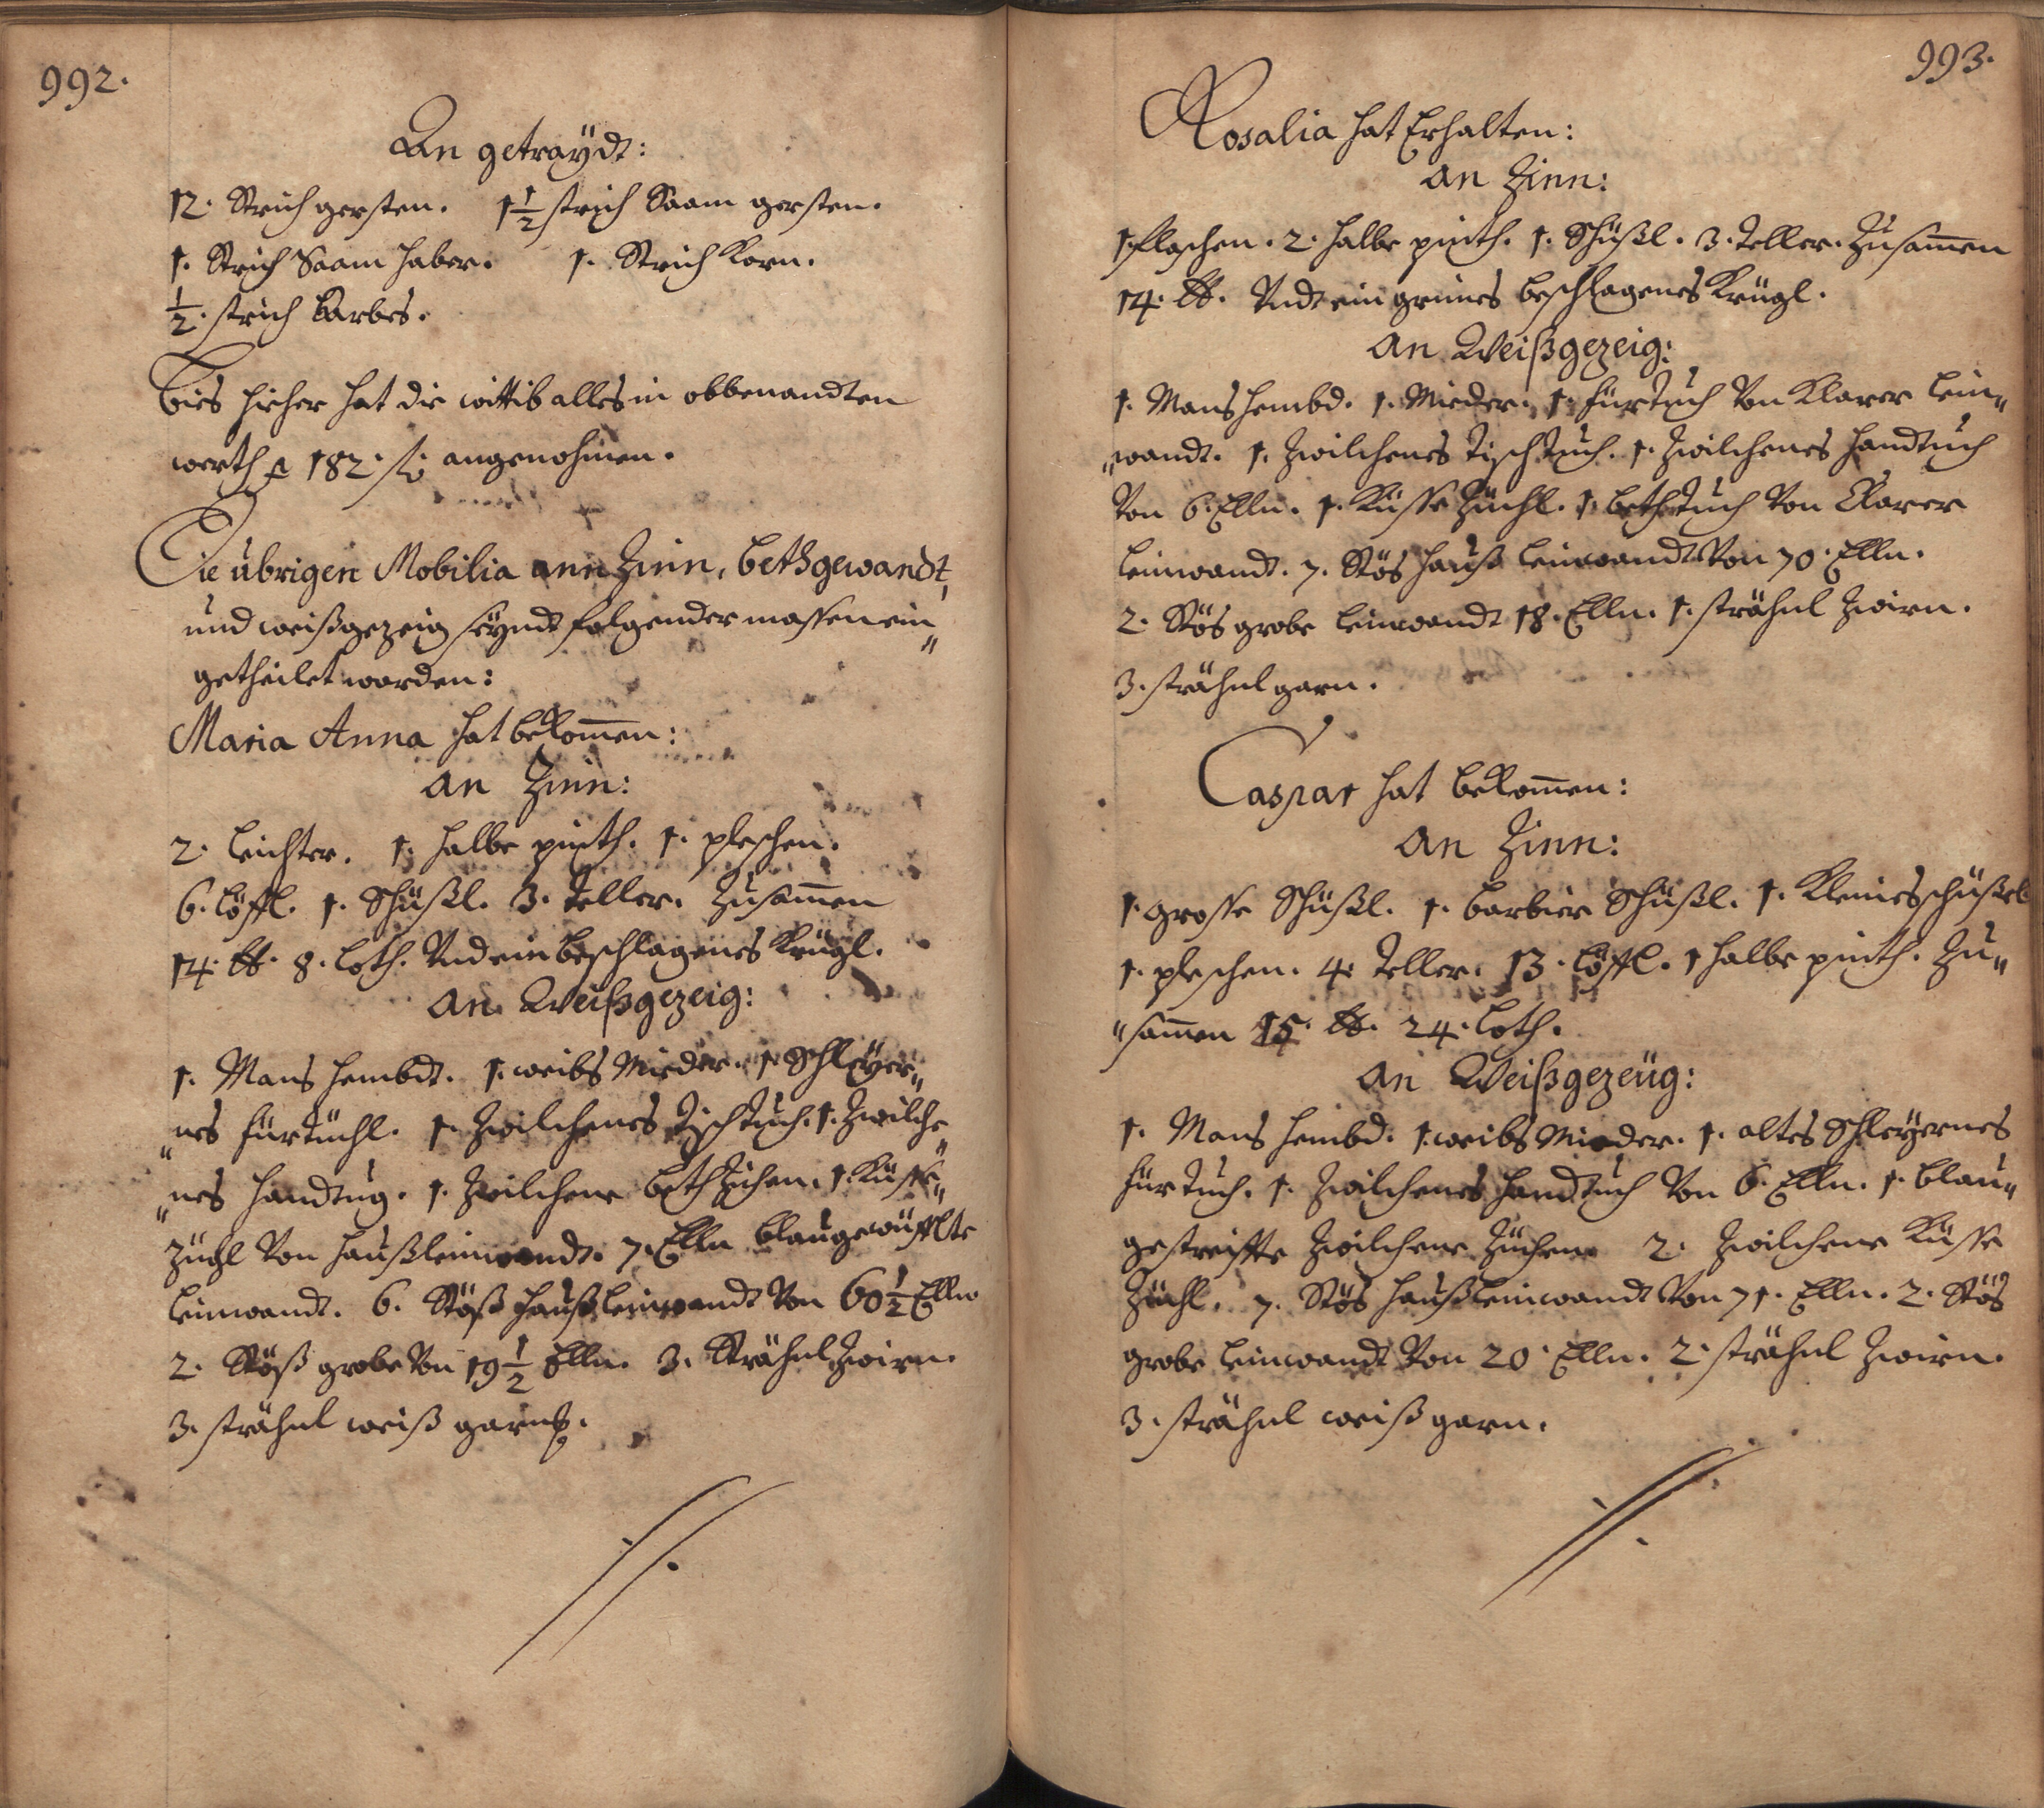 992.
An getraÿdt:
12. Strich gersten. 1 1/2 strich Saam gersten.
1. Strich Saam haber. 1. Strich Korn.
1/2. strich Arbes.
Bies hieher hat die wittib alles in obbenandten
werth p 182 f angenohmen.
Die übrigen Mobilia ann Zinn, bethgewandt,
und weißgezeig seyndt folgender massen ein„
getheilet worden:
Maria Anna hat bekom̄en:
an Zinn:
2. leichter. 1. halbe pinth. 1. pleschen.
6. löffl. 1. Schüßl. 3. Teller. Zusam̄en
14. ℔. 8. loth. Und ein beschlagenes Krügl.
an Weißgezeig:
1. Mans hembdt. 1. weibs Mieder. 1. Schleÿer„
„nes fürtüchl. 1. Zwilchenes Tischtuch. 1. Zwilche„
„nes handtug. 1. Zwilchene beth Zichen. 1. Küsse„
Züchl Von haußleinwandt. 7. Elln blaugewürflte
leinwandt. 6. Stöß haußleinwandt Von 60 1/2 Elln
2. Stöß grobe Von 19 1/2 Elln. 3. Strähnl Zwirn.
3. strähnl weiß garn.
993.
Rosalia hat Erhalten:
an Zinn:
1 flaschen. 2. halbe pinth. 1. Schüßl. 3. Teller. Zusam̄en
14. ℔. Undt ein grünes beschlagenes Krügl.
an Weißgezeig:
1. Mans hembd. 1. Mieder. 1. fürtuch Von Klarer lein„
„wandt. 1. Zwilchenes Tischtuch. 1. Zwilchenes handtuch
Von 6. Elln. 1. Küsse Züchl. 1. bethtuch Von Klarer
leinwandt. 7. Stös hauß leinwandt Von 70. Elln.
2. Stös grobe leinwandt 18. Elln. 1. strähnl Zwirn.
3. strähnl garn.
Caspar hat bekom̄en:
an Zinn:
1. grosse Schüßl. 1. barbier Schüßl. 1. Kleines schüßel
1. pleschen. 4. Teller. 13. löffl. 1 halbe pinth. Zu„
„sam̄en 15. ℔. 24. loth.
an Weißgezeüg:
1. Mans hembd. 1. weibs Mieder. 1. altes Schleÿernes
fürtuch. 1. Zwilchenes handtuch Von 6. Elln. 1. blau„
gestreiffte Zwilchene Züchen 2. Zwilchene Küsse
Züchl. 7. Stös haußleinwandt Von 71. Elln. 2. Stös
grobe leinwandt Von 20. Elln. 2. strähnl Zwirn.
3. strähnl weiß garn.